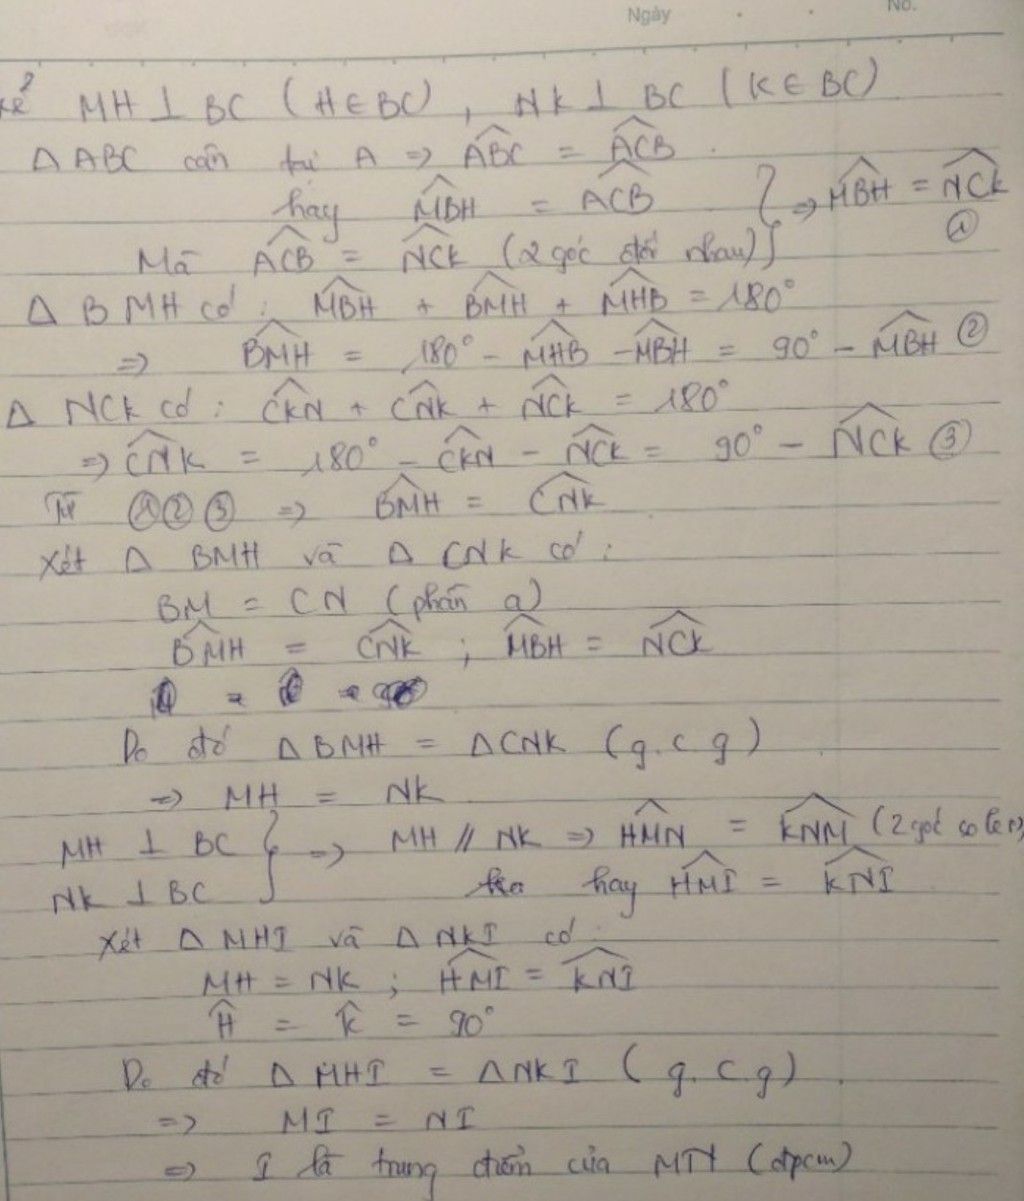 Ngày No.
kẻ MH ⊥ BC (H ∈ BC), NK ⊥ BC (K ∈ BC)
Δ ABC cân tại A => \widehat{ABC} = \widehat{ACB}.
hay \widehat{MBH} = \widehat{ACB} } => \widehat{MBH} = \widehat{NCK} ①
Mà \widehat{ACB} = \widehat{NCK} (2 góc đối nhau)
Δ BMH có: \widehat{MBH} + \widehat{BMH} + \widehat{MHB} = 180°
=> \widehat{BMH} = 180° - \widehat{MHB} - \widehat{MBH} = 90° - \widehat{MBH} ②
Δ NCK có: \widehat{CKN} + \widehat{CNK} + \widehat{NCK} = 180°
=> \widehat{CNK} = 180° - \widehat{CKN} - \widehat{NCK} = 90° - \widehat{NCK} ③
Từ ① ② ③ => \widehat{BMH} = \widehat{CNK}
Xét Δ BMH và Δ CNK có:
BM = CN (phần a)
\widehat{BMH} = \widehat{CNK} ; \widehat{MBH} = \widehat{NCK}
Do đó Δ BMH = Δ CNK (g.c.g)
=> MH = NK
MH ⊥ BC } => MH // NK => \widehat{HMN} = \widehat{KNM} (2 góc so le)
NK ⊥ BC hay \widehat{HMI} = \widehat{KNI}
Xét Δ MHI và Δ NKI có
MH = NK ; \widehat{HMI} = \widehat{KNI}
\widehat{H} = \widehat{K} = 90°
Do đó Δ MHI = Δ NKI (g.c.g).
=> MI = NI
=> I là trung điểm của MN (đpcm)